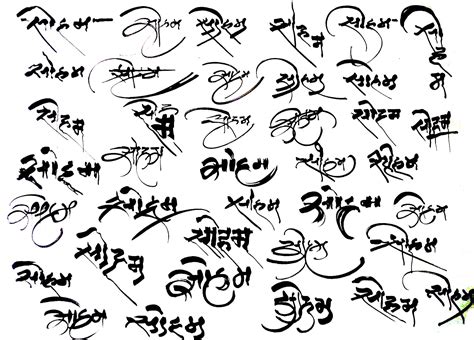 सोहम सोहम सोहम सोहम सोहम सोहम
सोहम सोहम सोहम सोहम सोहम
सोहम सोहम सोहम सोहम सोहम सोहम
सोहम सोहम सोहम सोहम सोहम
सोहम सोहम सोहम सोहम सोहम
सोहम सोहम सोहम सोहम
सोहम सोहम सोहम सोहम सोहम
सोहम सोहम